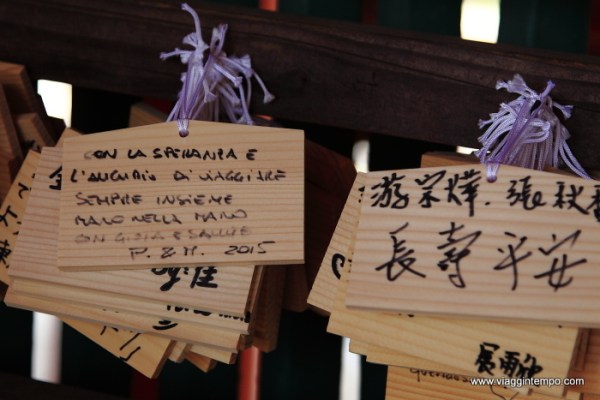 CON LA SPERANZA E
L'AUGURIO DI VIAGGIARE
SEMPRE INSIEME
MANO NELLA MANO
CON GIOIA E SALUTE
P. & M. 2015
游宗燁.張秋
長壽平安
www.viaggintempo.com